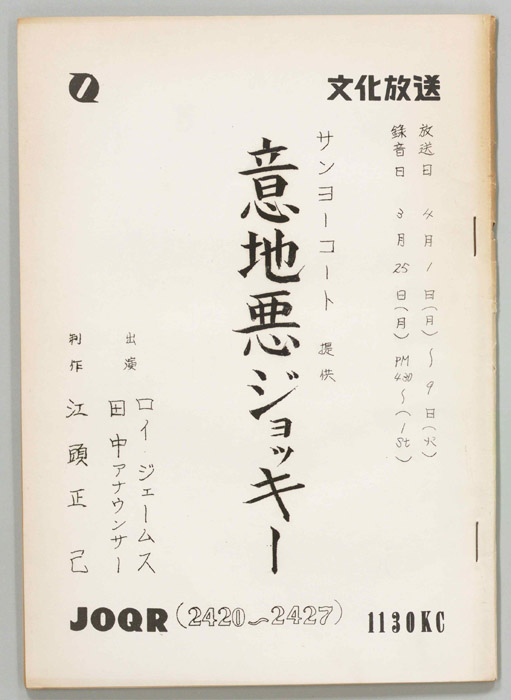 文化放送
放送日 4月1日(月)〜9日(火)
録音日 3月25日(月) PM 4:30〜(1St)
サンヨーコート 提供
意地悪ジョッキー
出演 ロイ・ジェームス
田中アナウンサー
制作 江頭正己
JOQR (2420〜2427) 1130KC